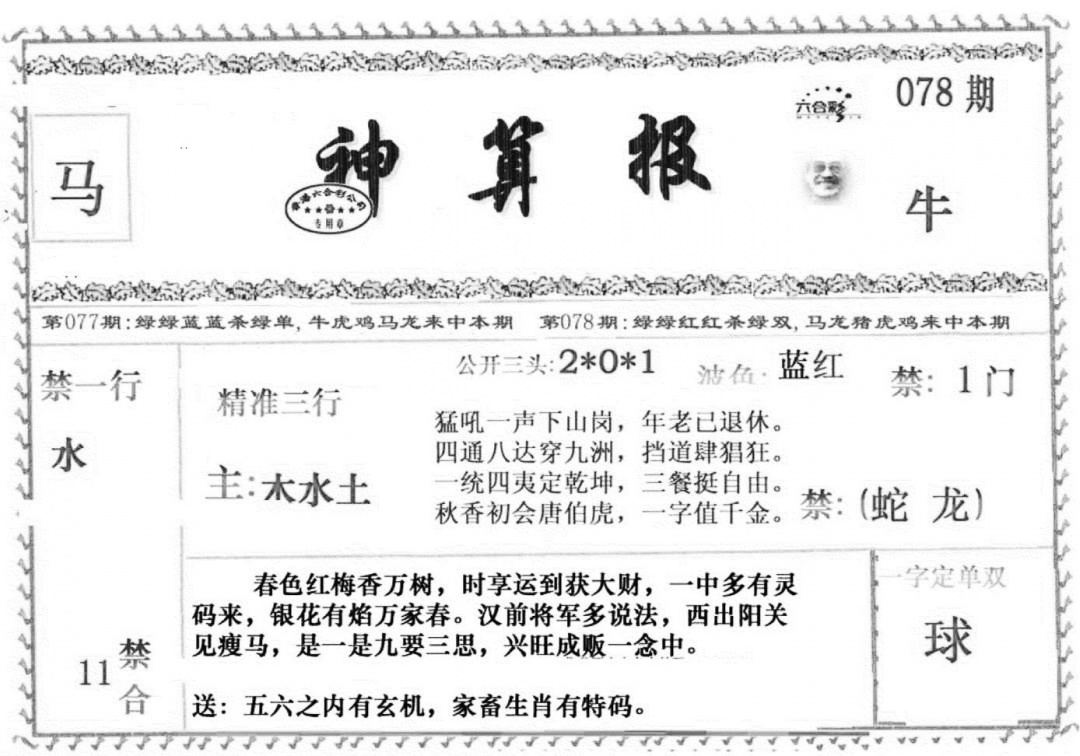 078期
六合彩
马
神算报
香港六合彩公司
专用章
牛
第077期:绿绿蓝蓝杀绿单,牛虎鸡马龙来中本期 第078期:绿绿红红杀绿双,马龙猪虎鸡来中本期
禁一行
水
精准三行
主:木水土
公开三头:2*0*1
波色:蓝红
禁:1门
猛吼一声下山岗，年老已退休。
四通八达穿九洲，挡道肆猖狂。
一统四夷定乾坤，三餐挺自由。
秋香初会唐伯虎，一字值千金。
禁:(蛇 龙)
春色红梅香万树，时享运到获大财，一中多有灵
码来，银花有焰万家春。汉前将军多说法，西出阳关
见瘦马，是一是九要三思，兴旺成贩一念中。
送：五六之内有玄机，家畜生肖有特码。
11禁合
一字定单双
球